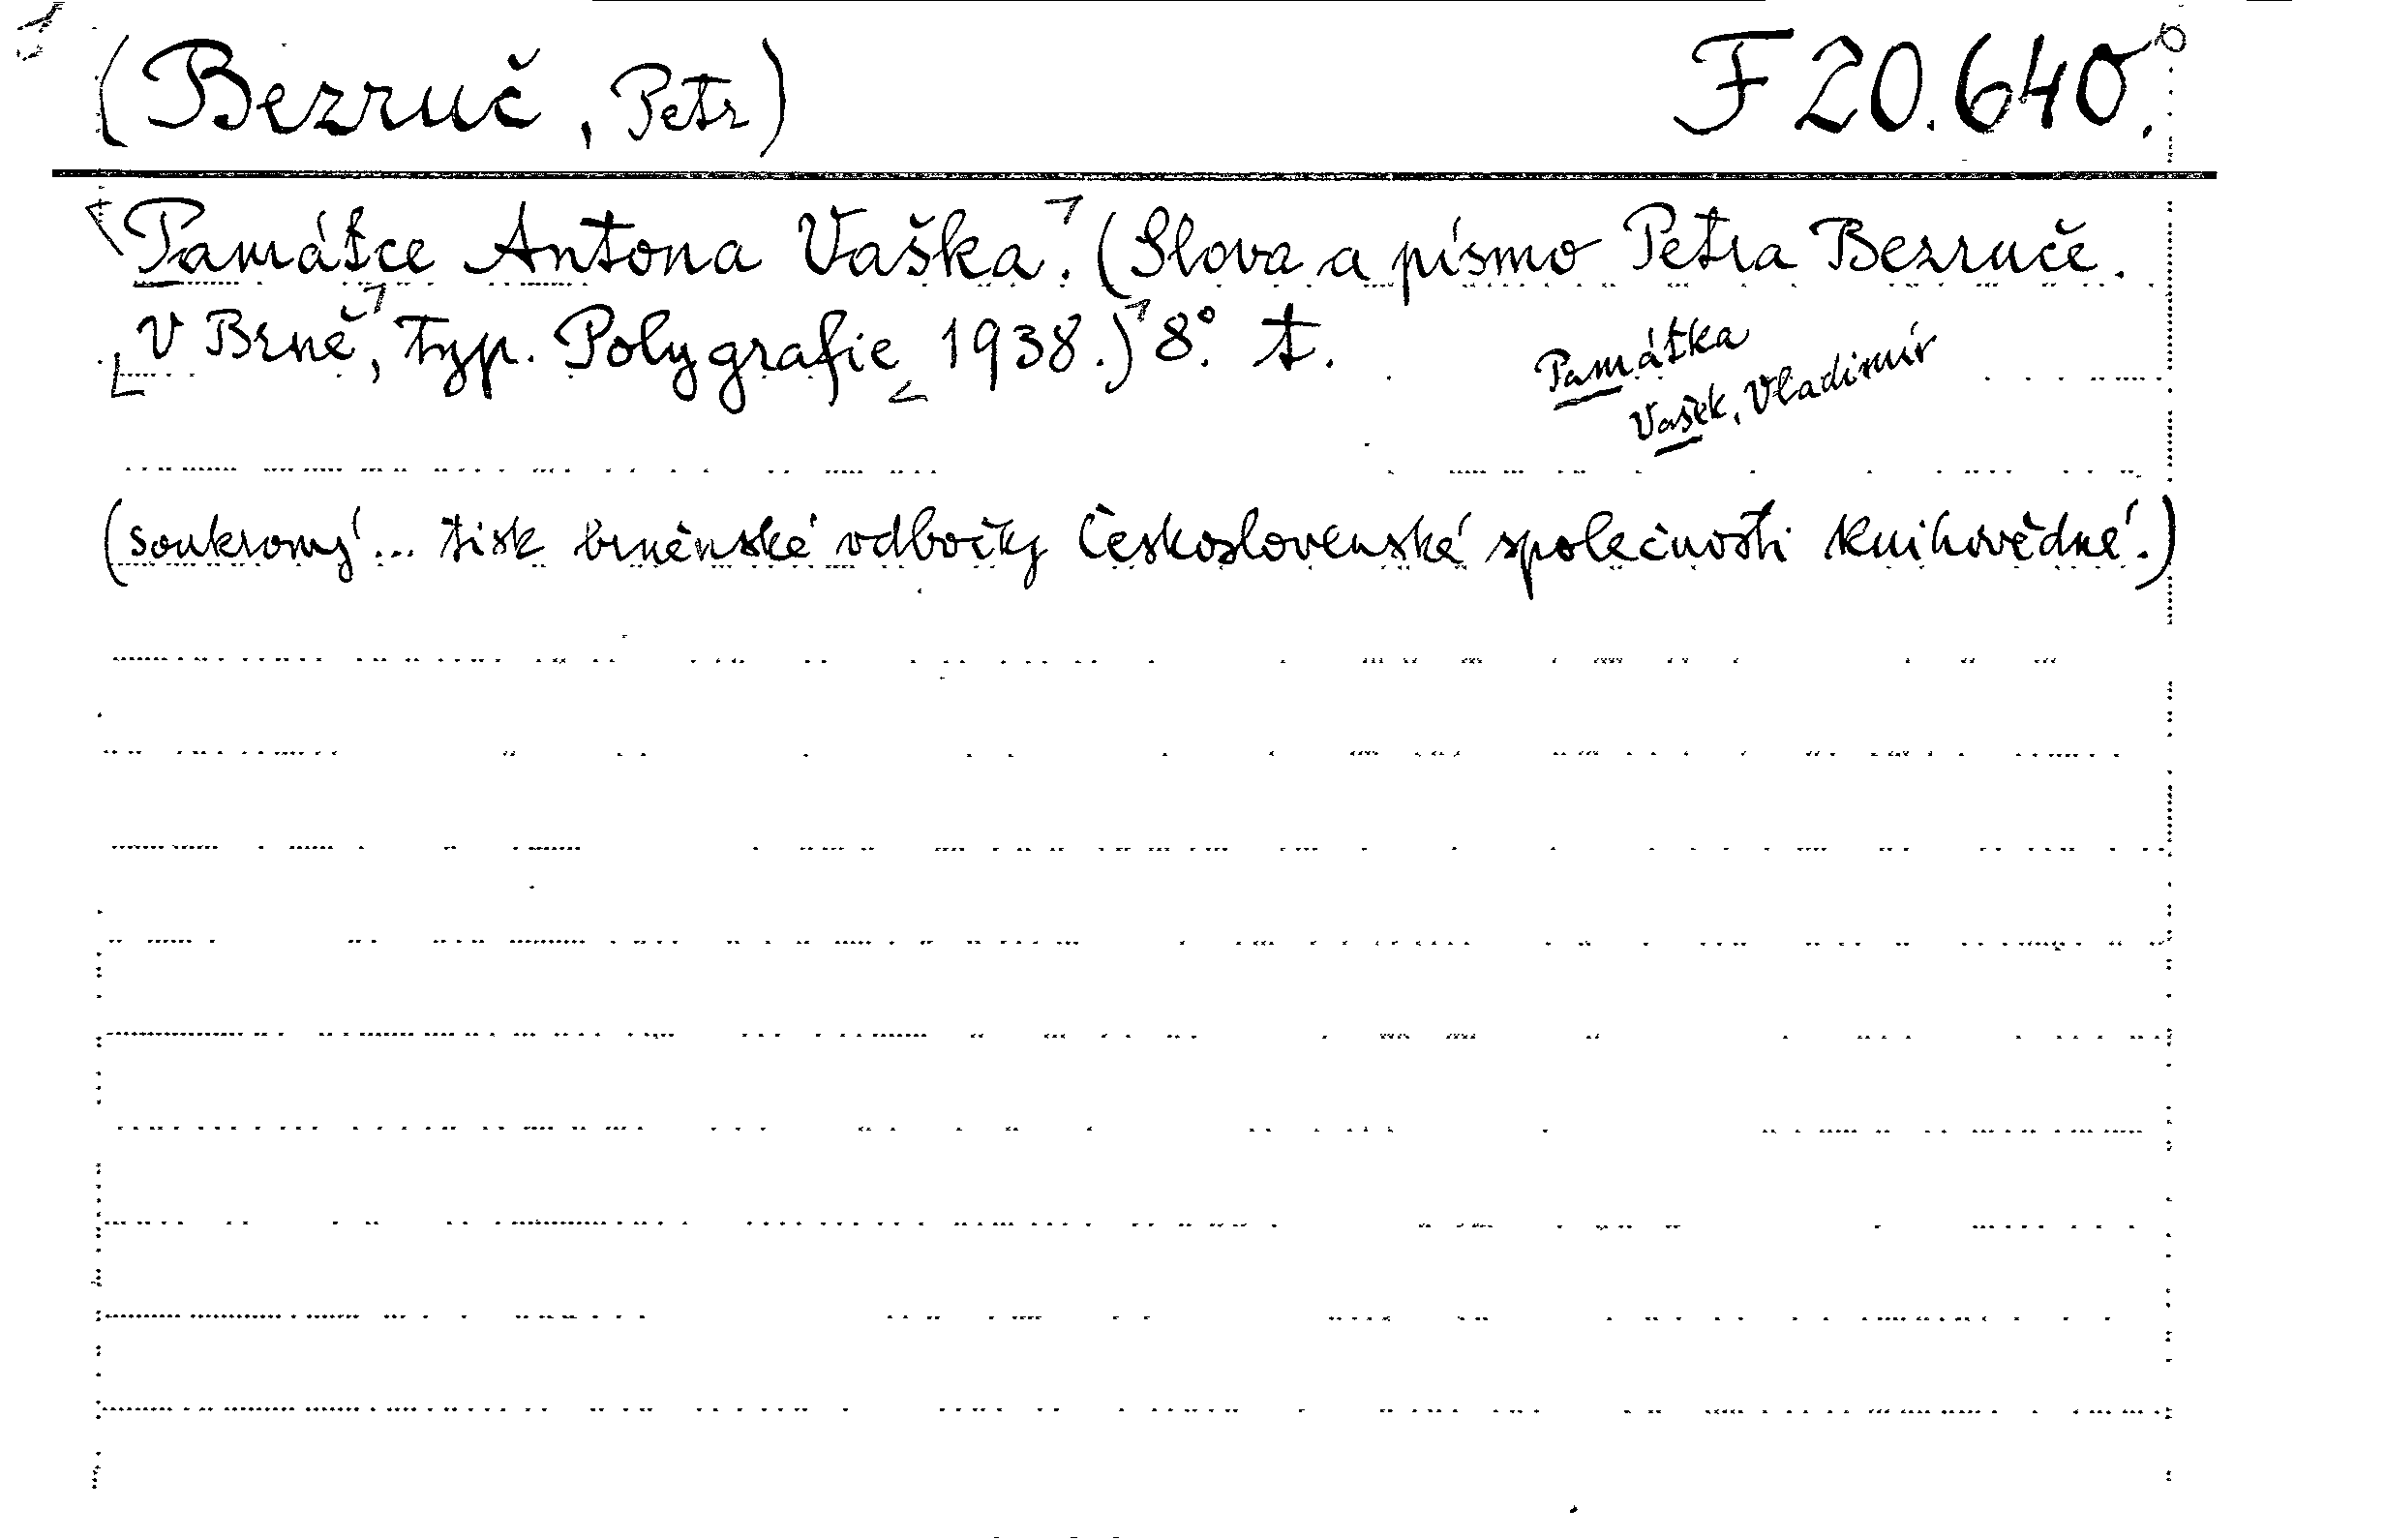 (Bezruč, Petr) F 20.640.
Památce Antona Vaška. (Slova a písmo Petra Bezruče.
V Brně, typ. Polygrafie 1938.) 8°. t.
Památka
Vašek, Vladimír
(soukromý... tisk brněnské odbočky Československé společnosti knihovědné.)